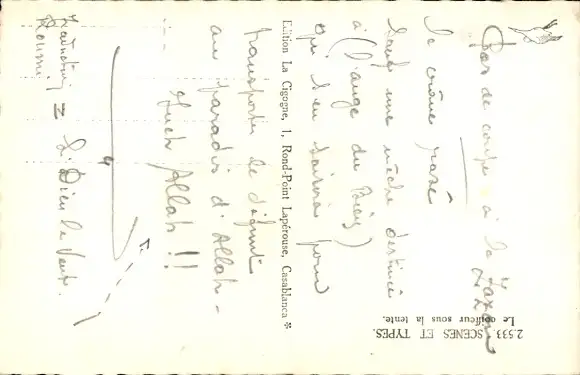 2.533. SCÈNES ET TYPES.
Le coiffeur sous la tente.
Pas de coupe à la Zazou
le crâne rasé
sauf une mèche destinée
à (l'ange du Bien)
qui s'en saisira pour
Edition La Cigogne, 1, Rond-Point Lapérouse, Casablanca
transporter le défunt
au paradis d'Allah -
Inch Allah !!
Traduction = Si Dieu le veut.
Roumi